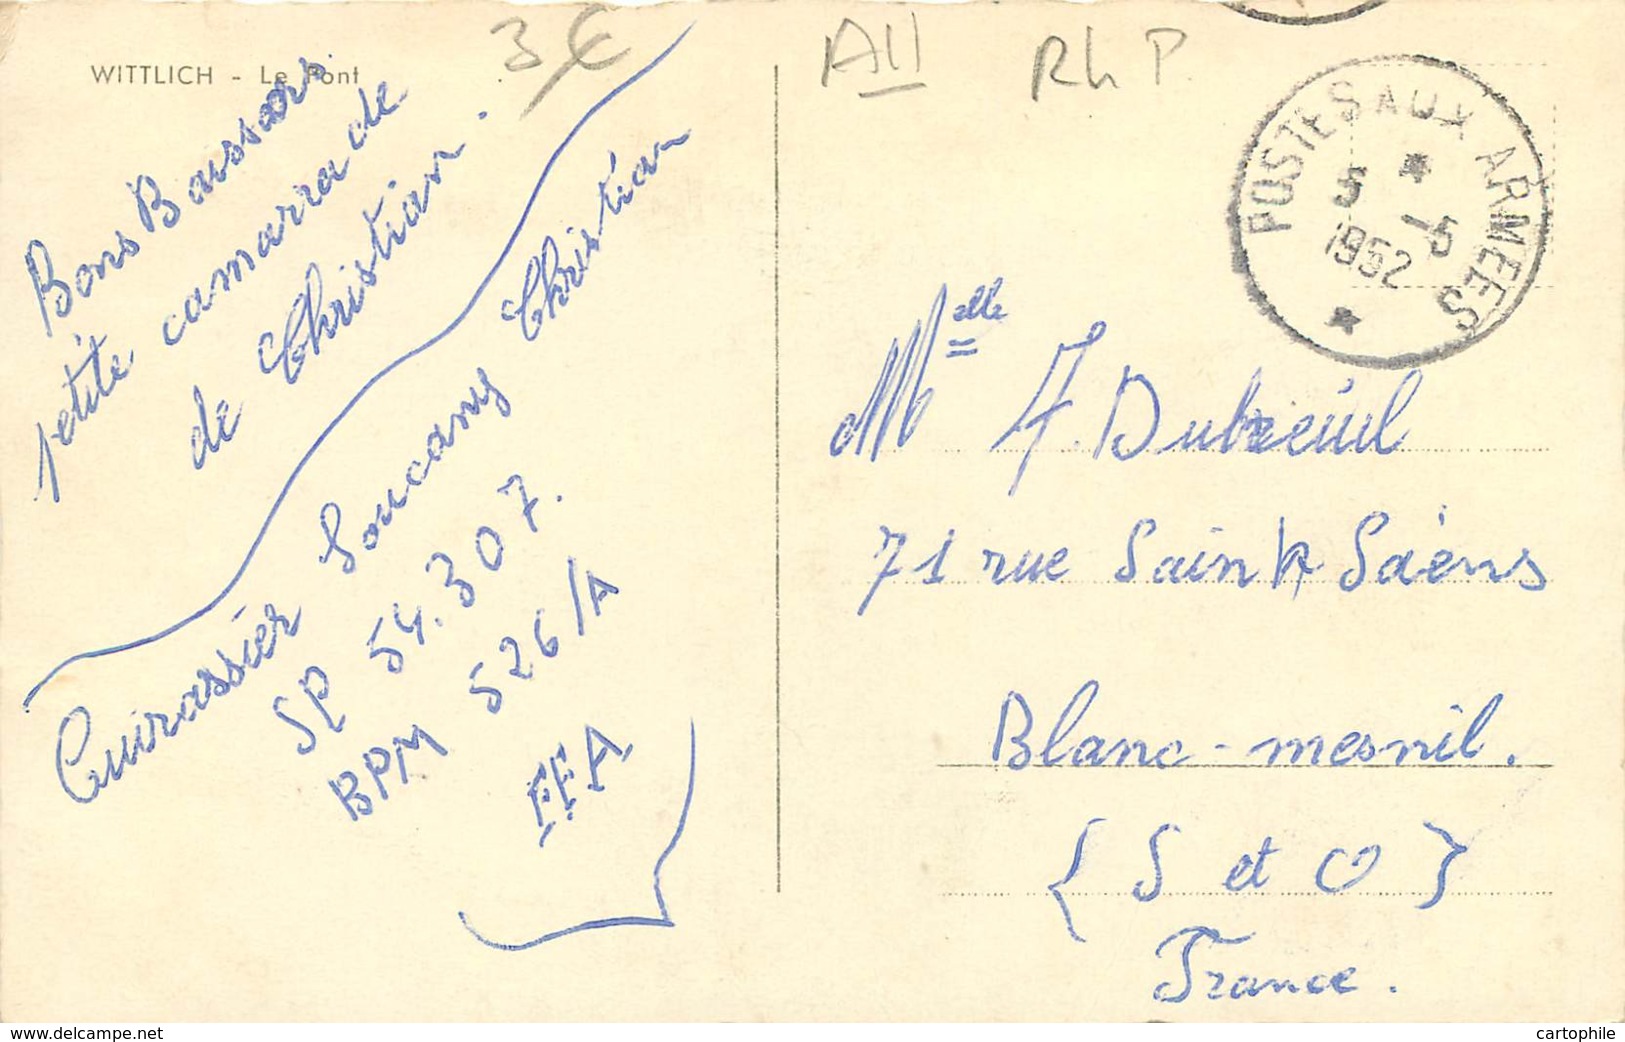 WITTLICH - Le Pont
3€
All
Rh P.
POSTES AUX ARMEES
5 -5
1952
Bons Baisers
petite camarrade
de Christian.
Cuirassier Soucany Christian
SP 54.307.
BPM 526/A
FFA
Melle A. Dubreuil
71 rue Saint Saëns
Blanc-mesnil.
{S et O}
France.
delcampe.net
cartophile